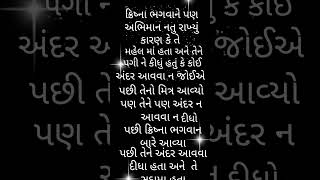 ક્રિષ્નાં ભગવાને પણ
અભિમાન નતુ રાખ્યું
કારણ કે તે
મહેલ માં હતા અને તેને
પગી ને કીધું હતું કે કોઈ
અંદર આવવા ન જોઈએ
પછી તેનો મિત્ર આવ્યો
પણ તેને પણ અંદર ન
આવવા ન દીધો
પછી ક્રિષ્ના ભગવાન
બારે આવ્યા
પછી તેને અંદર આવવા
દીધા હતા અને તે
સુદામા હતા